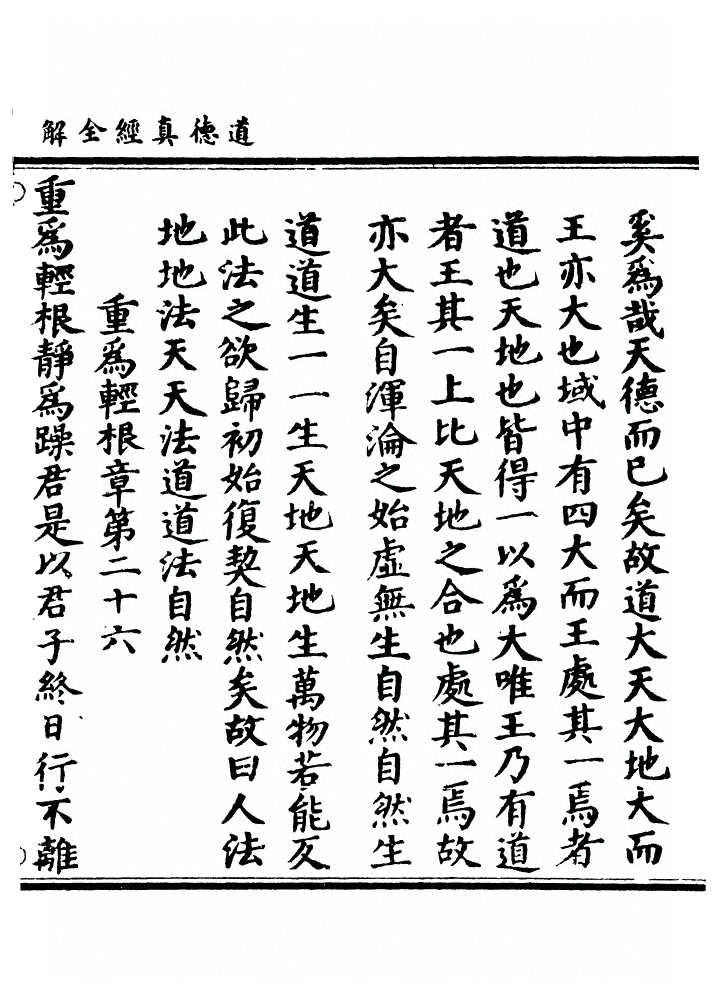 道德真經全解
奚為哉天德而已矣故道大天大地大而
王亦大也域中有四大而王處其一焉者
道也天地也皆得一以為大唯王乃有道
者王其一上比天地之合也處其一焉故
亦大矣自渾淪之始虛無生自然自然生
道道生一一生天地天地生萬物若能反
此法之欲歸初始復契自然矣故曰人法
地地法天天法道道法自然
重為輕根章第二十六
重為輕根靜為躁君是以君子終日行不離